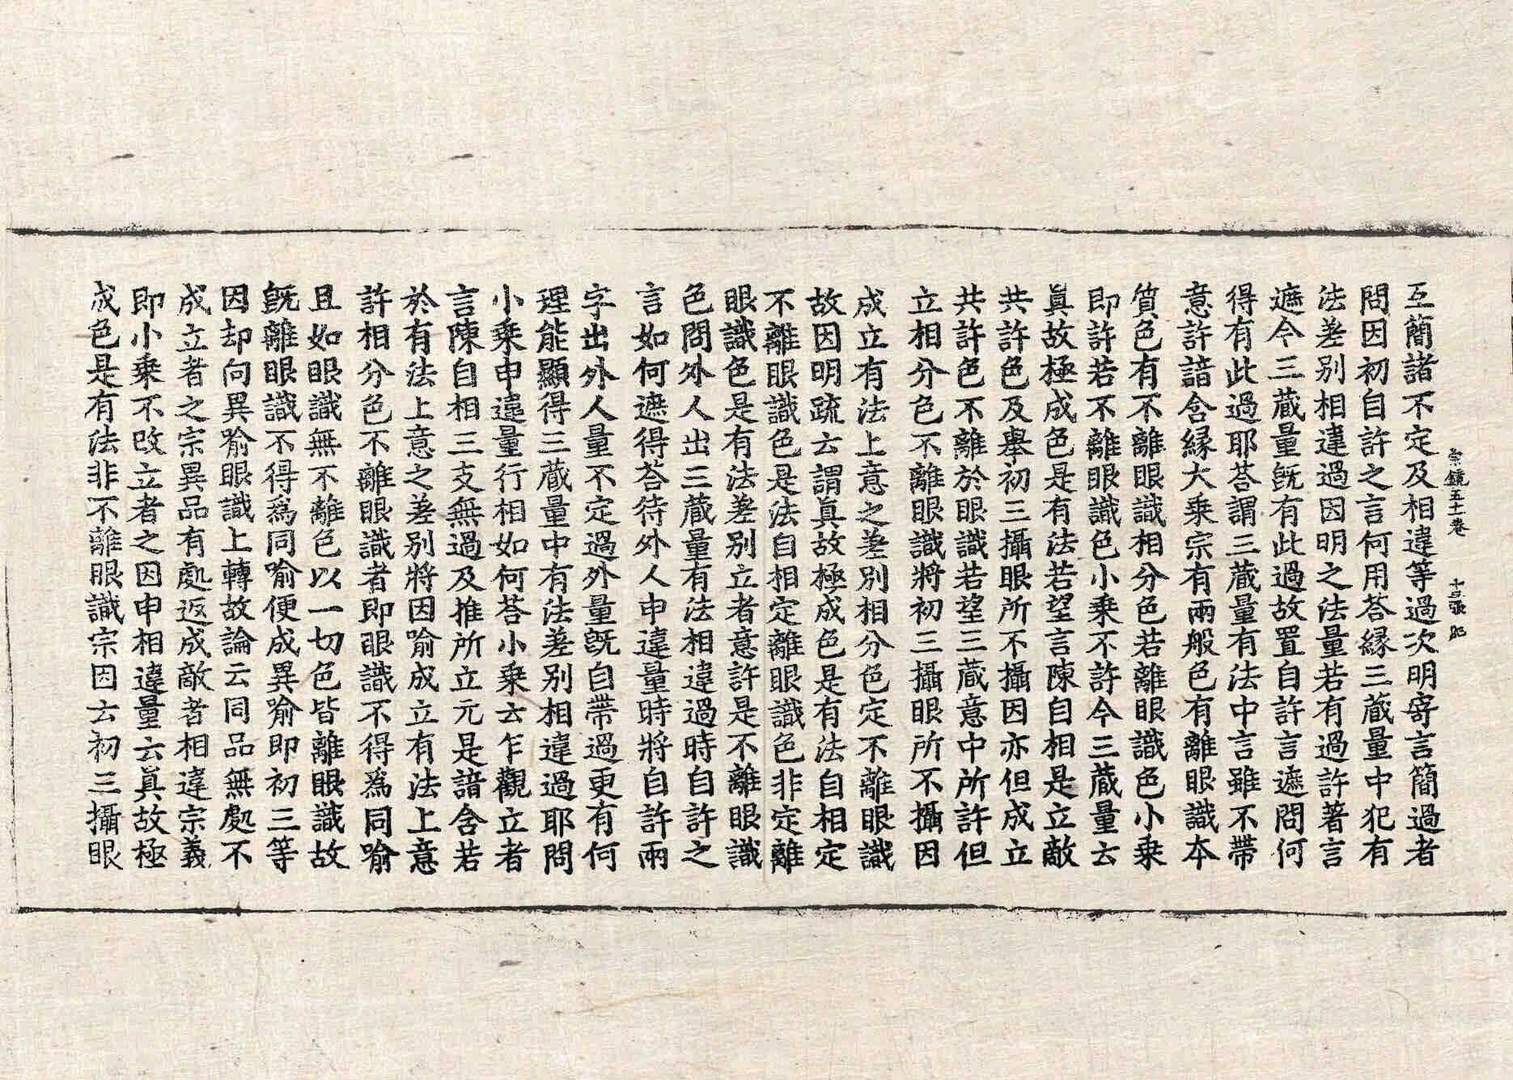 宗鏡五十一卷 十二張 肥
互簡諸不定及相違等過次明寄言簡過者
問因初自許之言何用荅縁三藏量中犯有
法差別相違過因明之法量若有過許著言
遮今三藏量旣有此過故置自許言遮問何
得有此過耶荅謂三藏量有法中言雖不帶
意許諳含縁大乘宗有兩般色有離眼識本
質色有不離眼識相分色若離眼識色小乘
即許若不離眼識色小乘不許今三藏量云
眞故極成色是有法若望言陳自相是立敵
共許色及舉初三攝眼所不攝因亦但成立
共許色不離於眼識若望三藏意中所許但
立相分色不離眼識將初三攝眼所不攝因
成立有法上意之差別相分色定不離眼識
故因明疏云謂眞故極成色是有法自相定
不離眼識色是法自相定離眼識色非定離
眼識色是有法差別立者意許是不離眼識
色問外人出三藏量有法相違過時自許之
言如何遮得荅待外人申違量時將自許兩
字出外人量不定過外量旣自帶過更有何
理能顯得三藏量中有法差別相違過耶問
小乘申違量行相如何荅小乘云乍觀立者
言陳自相三支無過及推所立元是諳含若
於有法上意之差別將因喻成立有法上意
許相分色不離眼識者即眼識不得爲同喻
且如眼識無不離色以一切色皆離眼識故
旣離眼識不得爲同喻便成異喻即初三等
因却向異喻眼識上轉故論云同品無處不
成立者之宗異品有處返成敵者相違宗義
即小乘不改立者之因申相違量云眞故極
成色是有法非不離眼識宗因云初三攝眼